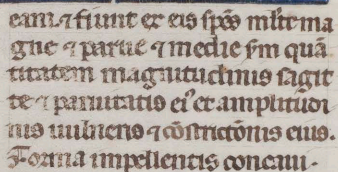 eam ⁊ fiunt ex eis sp̄es ml̄te ma
gne ⁊ parue ⁊ medie ẜm quā
titatem magnitudinis sagit
te ⁊ paruitatis ei᷒ et amplitudi
nis uulneris ⁊ cōstrictōnis eius.
Forma impellentis concaui.